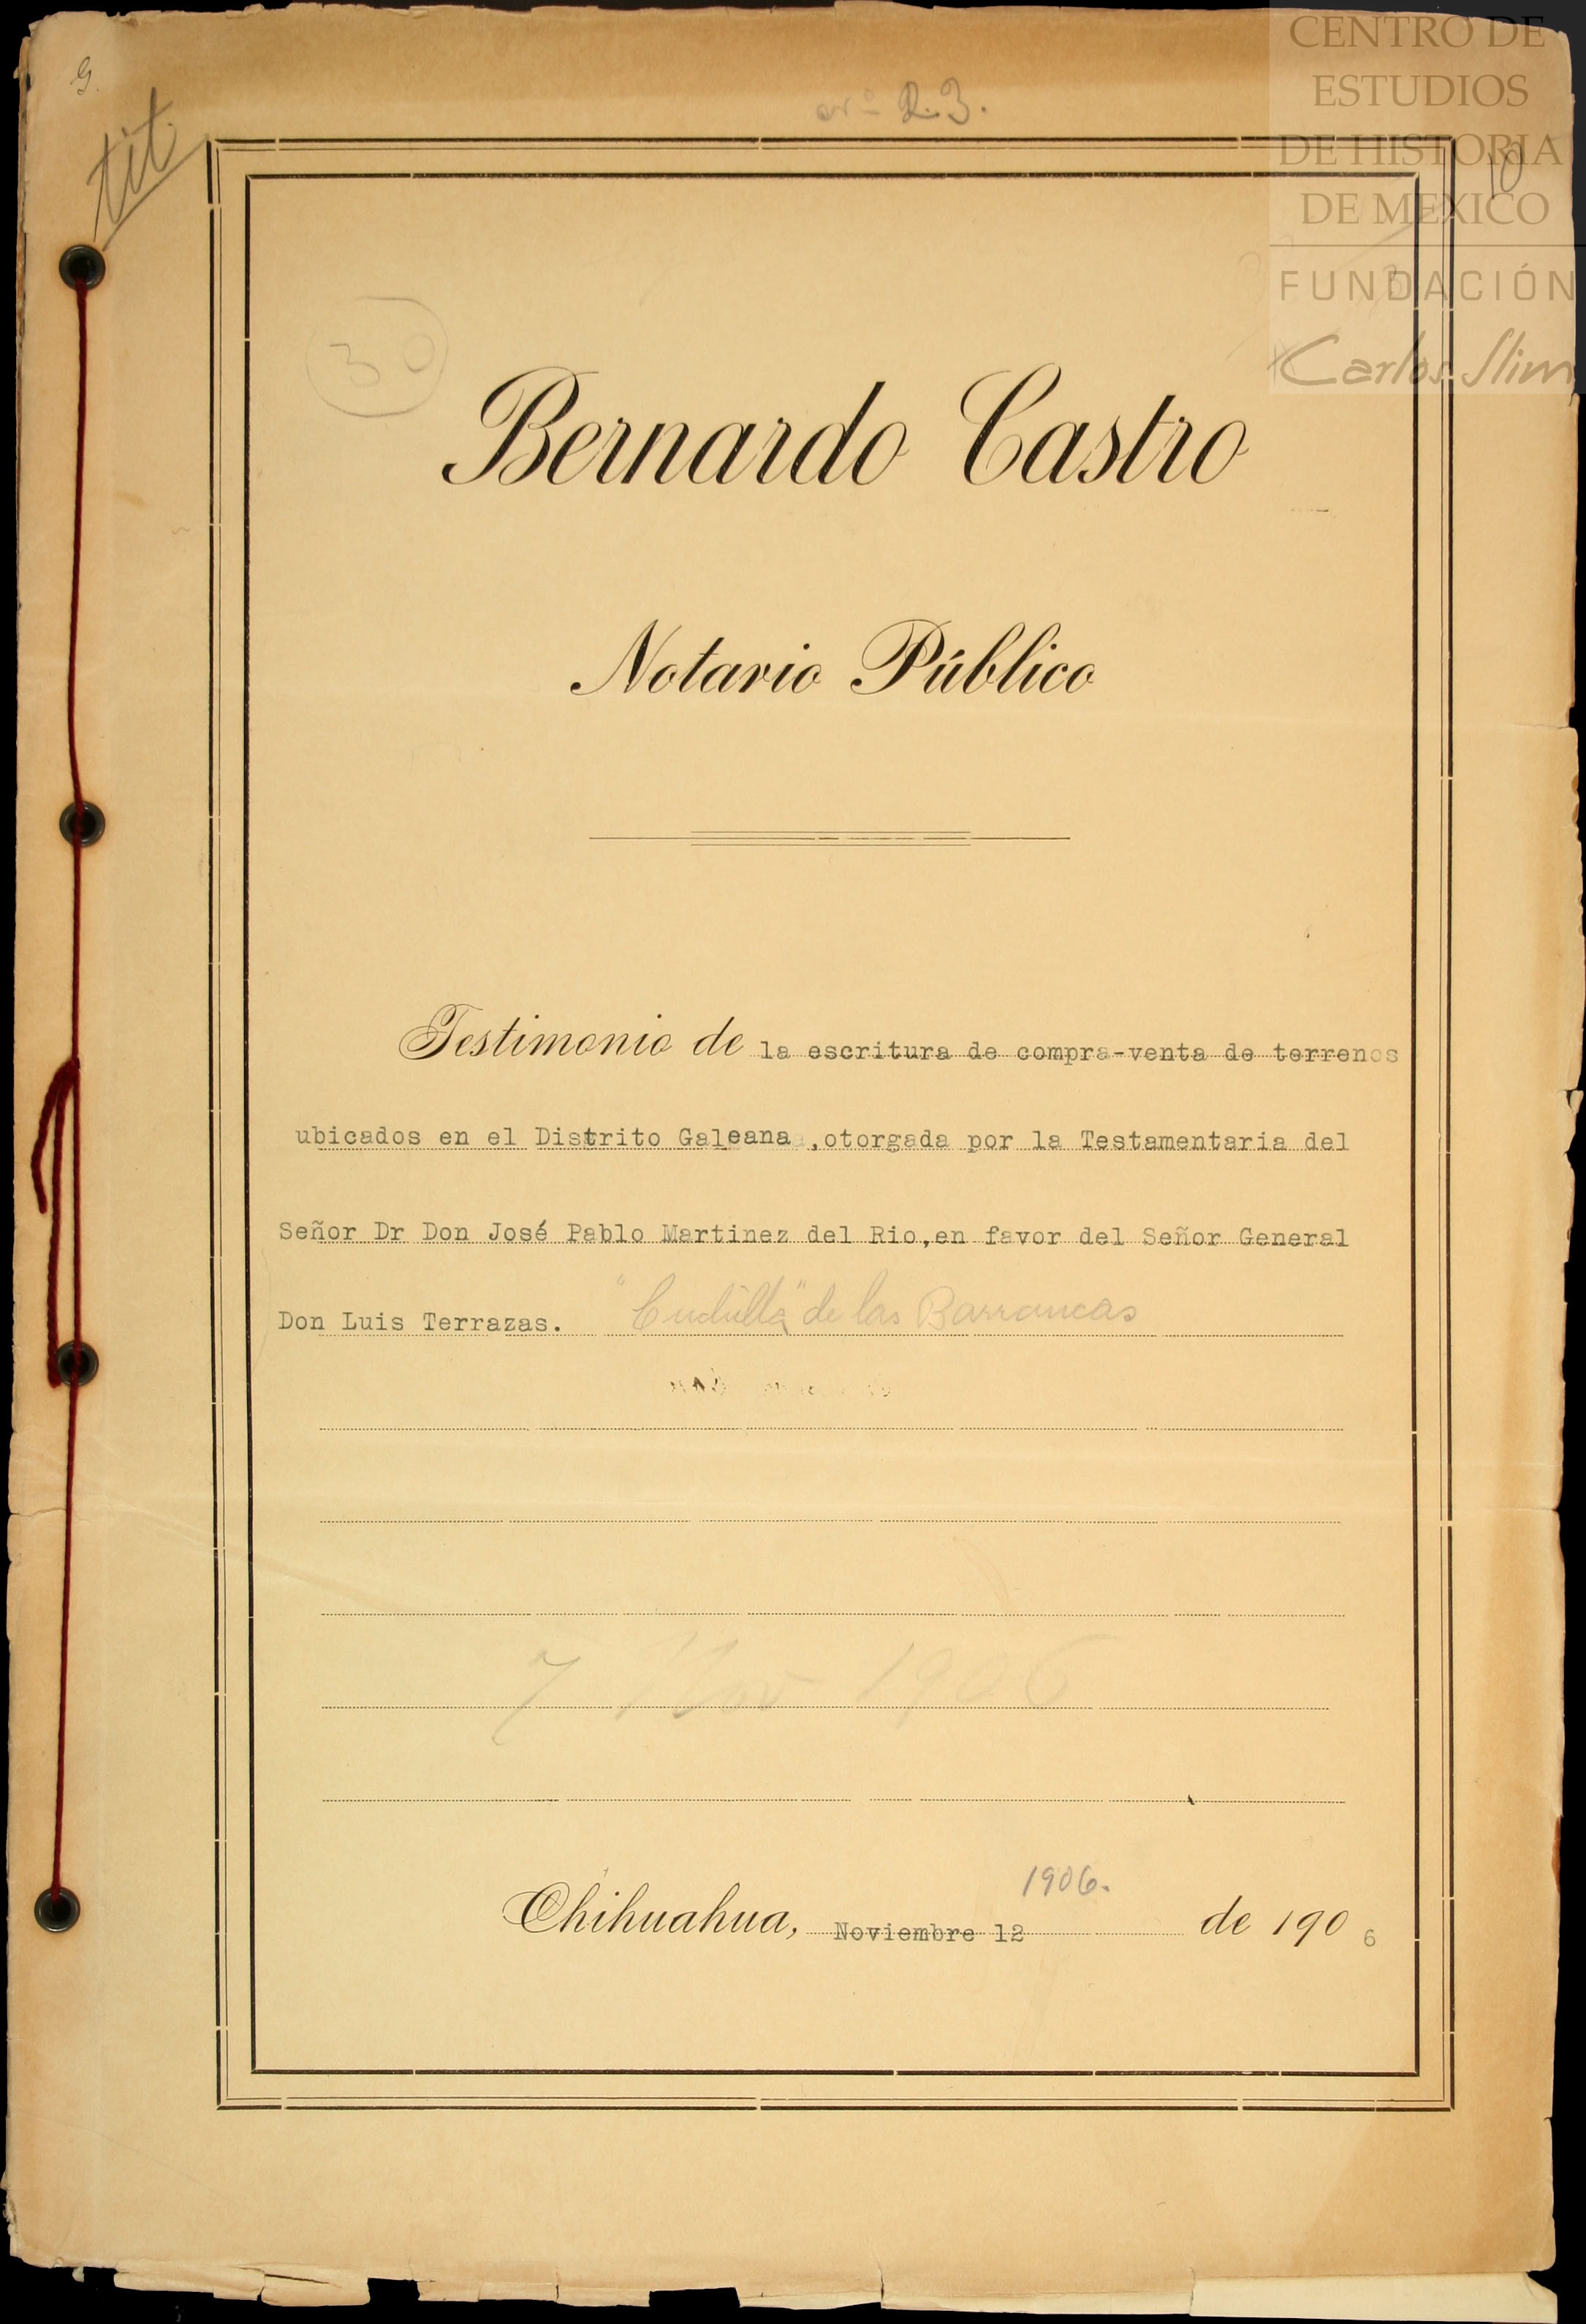 CENTRO DE
ESTUDIOS
DE HISTORIA
DE MEXICO
FUNDACIÓN
Carlos Slim
9.
tit.
2.3.
10
30
Bernardo Castro
Notario Público
Testimonio de la escritura de compra-venta de terrenos
ubicados en el Distrito Galeana ,otorgada por la Testamentaria del
Señor Dr Don José Pablo Martinez del Rio,en favor del Señor General
Don Luis Terrazas. de las Barrancas
7 Nov 1906
1906.
Chihuahua, Noviembre 12 de 1906